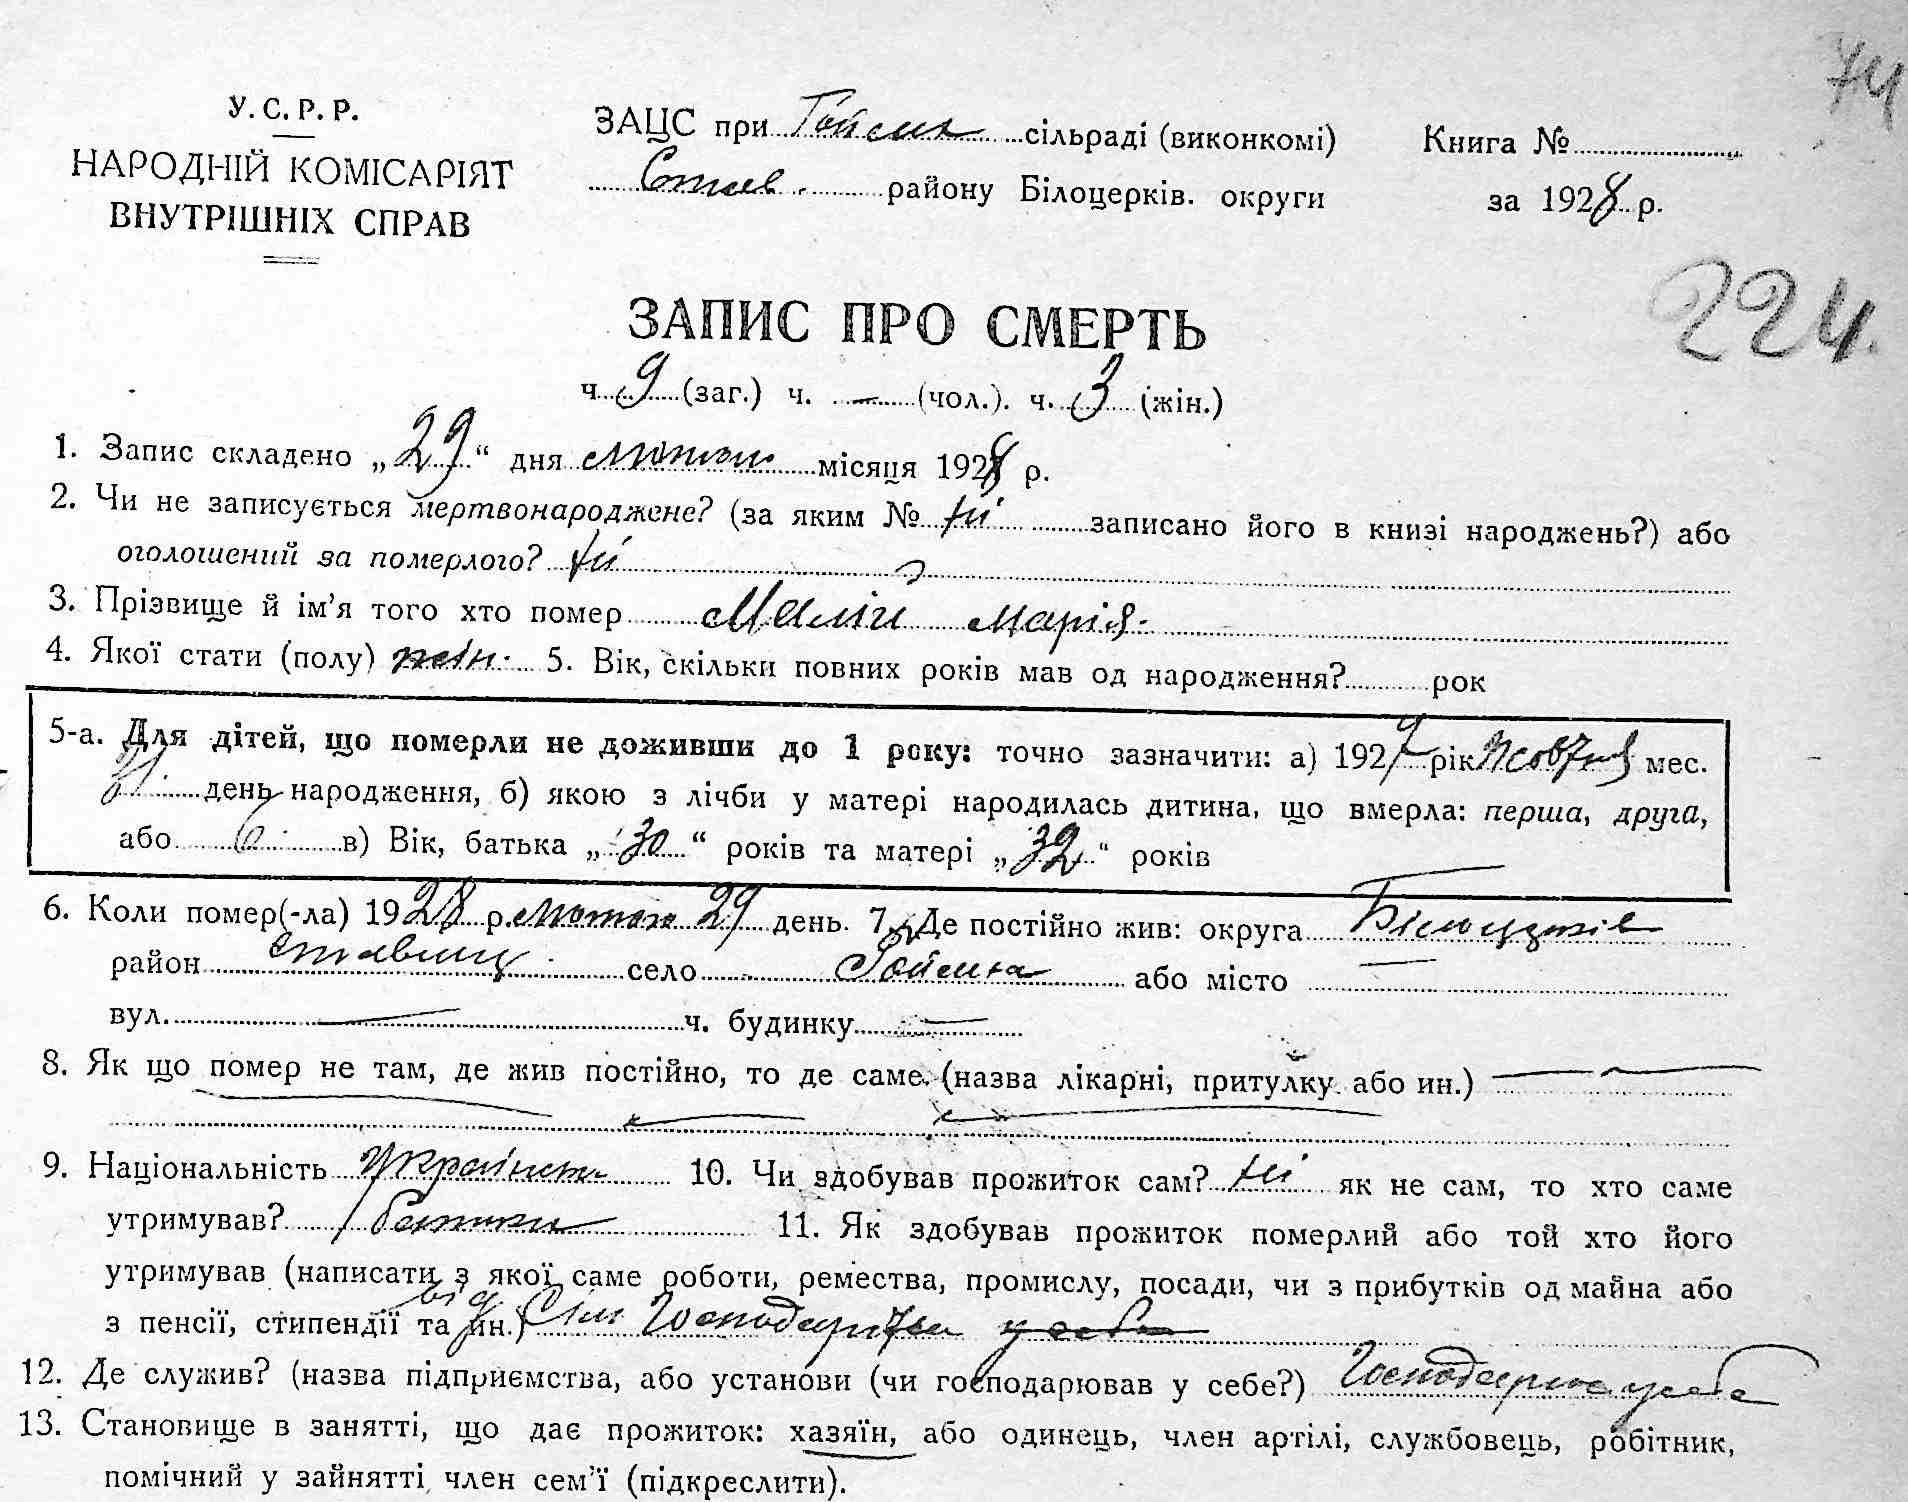 74
У. С. Р. Р.
НАРОДНІЙ КОМІСАРІЯТ
ВНУТРІШНІХ СПРАВ
ЗАЦС при Гойсик сільраді (виконкомі)
Став. району Білоцерків. округи
Книга №
за 1928 р.
224.
ЗАПИС ПРО СМЕРТЬ
ч. 9 (заг.) ч. — (чол.). ч. 3 (жін.)
1. Запис складено „29“ дня лютого місяця 1928 р.
2. Чи не записується мертвонароджене? (за яким № ні записано його в книзі народжень?) або
оголошений за померлого? ні
3. Прізвище й ім’я того хто помер Маліи Марія.
4. Якої стати (полу) жін. 5. Вік, скільки повних років мав од народження? рок
5-а. Для дітей, що померли не доживши до 1 року: точно зазначити: а) 1927 рік Жовтня мес.
21 день народження, б) якою з лічби у матері народилась дитина, що вмерла: перша, друга,
або 6 в) Вік, батька „30“ років та матері „32“ років
6. Коли помер(-ла) 1928 р. лютого 29 день. 7. Де постійно жив: округа Білоцерків
район Ставищ. село або місто —
вул. — ч. будинку —
8. Як що помер не там, де жив постійно, то де саме. (назва лікарні, притулку або ин.) —
9. Національність Українка 10. Чи здобував прожиток сам? ні як не сам, то хто саме
утримував? батьки 11. Як здобував прожиток померлий або той хто його
утримував (написати з якої саме роботи, ремества, промислу, посади, чи з прибутків од майна або
з пенсії, стипендії та ин.) від Сіл Господарства у себе
12. Де служив? (назва підприємства, або установи (чи господарював у себе?) Господарює у себе
13. Становище в занятті, що дає прожиток: хазяїн, або одинець, член артілі, службовець, робітник,
помічний у зайнятті член сем’ї (підкреслити).